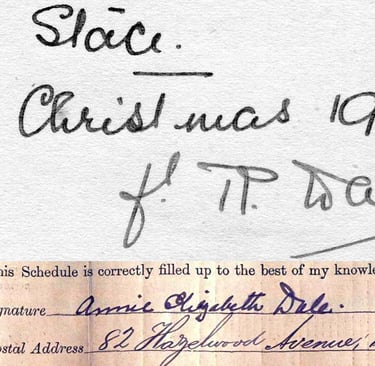 Stacé.
Christmas 19
his Schedule is correctly filled up to the best of my knowle
gnature Annie Elizabeth Dale.
ostal Address 82 Hazelwood Avenue,